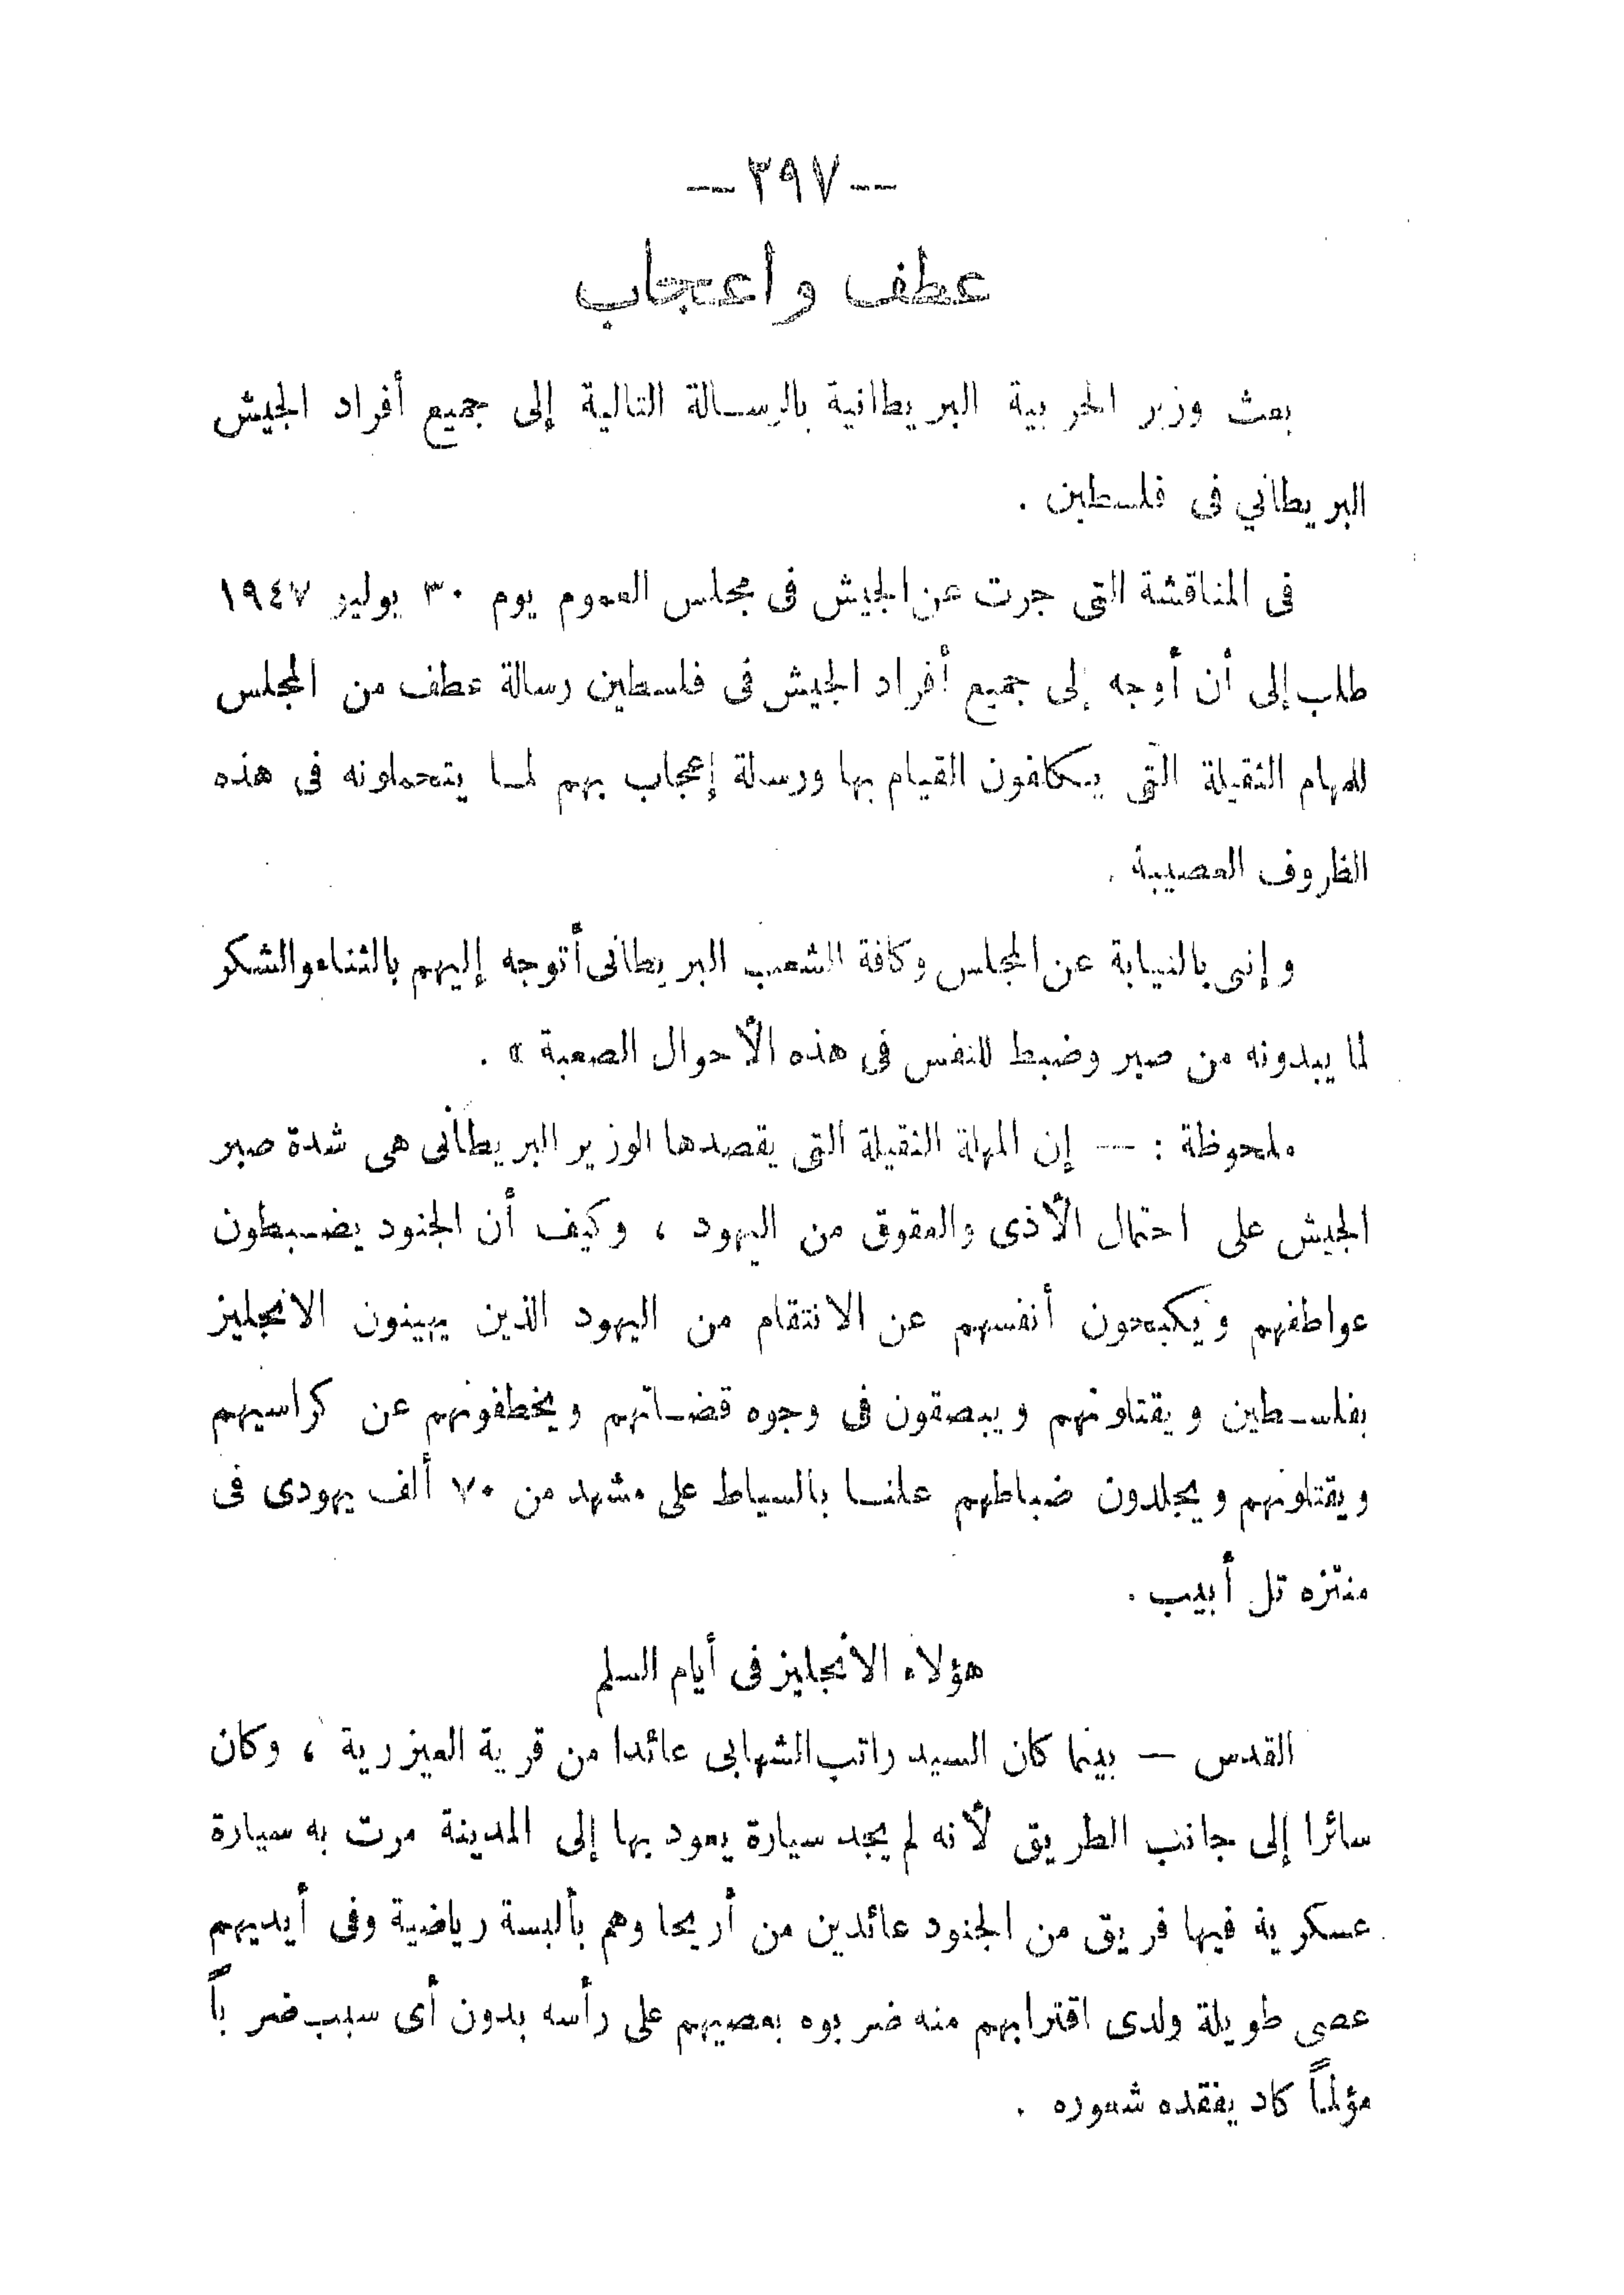 — ٣٩٧ —
عطف واعجاب
بعث وزير الحربية البريطانية بالرسالة التالية إلى جميع أفراد الجيش
البريطاني فى فلسطين .
فى المناقشة التى جرت عن الجيش فى مجلس العموم يوم ٣٠ يوليو ١٩٤٧
طلب إلى أن أوجه إلى جميع أفراد الجيش فى فلسطين رسالة عطف من المجلس
للمهام الثقيلة التى يكلفون القيام بها ورسالة إعجاب بهم لما يتحملونه فى هذه
الظروف العصيبة .
وإنى بالنيابة عن المجلس وكافة الشعب البريطانى أتوجه إليهم بالثناء والشكر
لما يبدونه من صبر وضبط للنفس فى هذه الأحوال الصعبة » .
ملحوظة : — إن المهلة الثقيلة التى يقصدها الوزير البريطانى هى شدة صبر
الجيش على احتمال الأذى والعقوق من اليهود ، وكيف أن الجنود يضبطون
عواطفهم ويكبحون أنفسهم عن الانتقام من اليهود الذين يهينون الانجليز
بفلسطين ويقتلونهم ويبصقون فى وجوه قضاتهم ويخطفونهم عن كراسيهم
ويقتلونهم ويجلدون ضباطهم علنا بالسياط على مشهد من ٧٠ ألف يهودى فى
منتزه تل أبيب .
هؤلاء الانجليز فى أيام السلم
القدس — بينما كان السيد راتب الشهابى عائدا من قرية العيزرية ، وكان
سائرا إلى جانب الطريق لأنه لم يجد سيارة يعود بها إلى المدينة مرت به سيارة
عسكرية فيها فريق من الجنود عائدين من أريحا وهم بألبسة رياضية وفى أيديهم
عصى طويلة ولدى اقترابهم منه ضربوه بعصيهم على رأسه بدون أى سبب ضرباً
مؤلماً كاد يفقده شعوره .